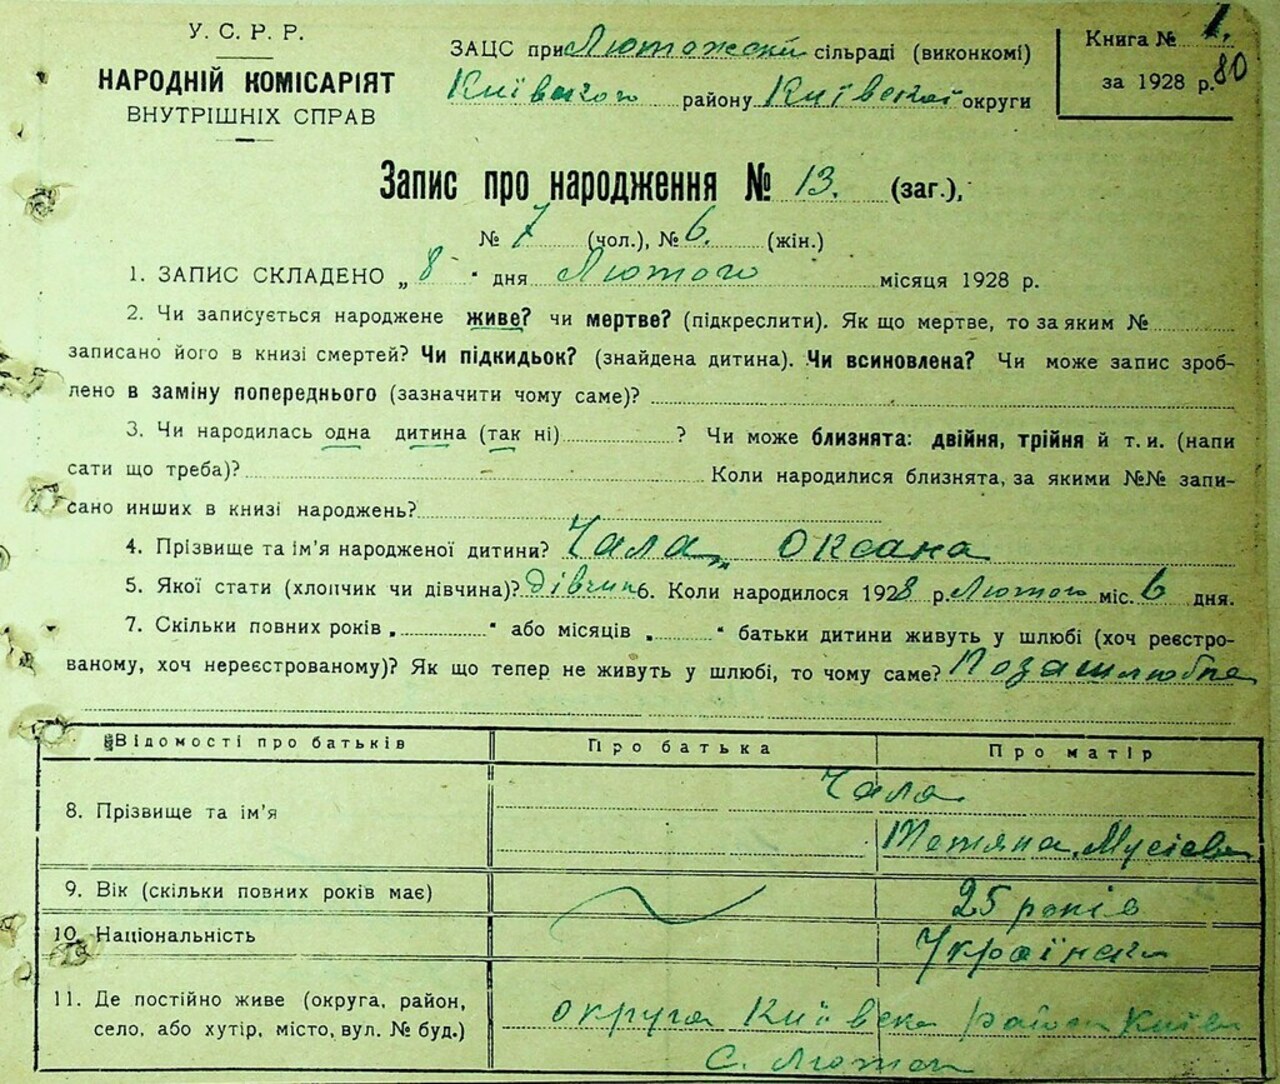 У. С. Р. Р.
НАРОДНІЙ КОМІСАРІЯТ
ВНУТРІШНІХ СПРАВ
ЗАЦС при Лютожскій сільраді (виконкомі)
Київского району Київской округи
Книга № 1.
за 1928 р. 80
Запис про народження № 13. (заг.),
№ 7 (чол.), № 6. (жін.)
1. ЗАПИС СКЛАДЕНО „ 8 " дня Лютого місяця 1928 р.
2. Чи записується народжене живе? чи мертве? (підкреслити). Як що мертве, то за яким №
записано його в книзі смертей? Чи підкидьок? (знайдена дитина). Чи всиновлена? Чи може запис зроб-
лено в заміну попереднього (зазначити чому саме)?
3. Чи народилась одна дитина (так ні) ? Чи може близнята: двійня, трійня й т. и. (напи
сати що треба)? Коли народилися близнята, за якими №№ запи-
сано инших в книзі народжень?
4. Прізвище та ім'я народженої дитини? Чала Оксана
5. Якої стати (хлопчик чи дівчина)? дівчин 6. Коли народилося 1928 р. Лютого міс. 6 дня.
7. Скільки повних років „ " або місяців „ " батьки дитини живуть у шлюбі (хоч реєстро-
ваному, хоч нереєстрованому)? Як що тепер не живуть у шлюбі, то чому саме? Позашлюбна
Відомості про батьків Про батька Про матір
8. Прізвище та ім'я Чала
Тетяна Мусієва
9. Вік (скільки повних років має) 25 років
10. Національність Українка
11. Де постійно живе (округа, район,
село, або хутір, місто, вул. № буд.)
округа Київска район Київ
С. Лютож